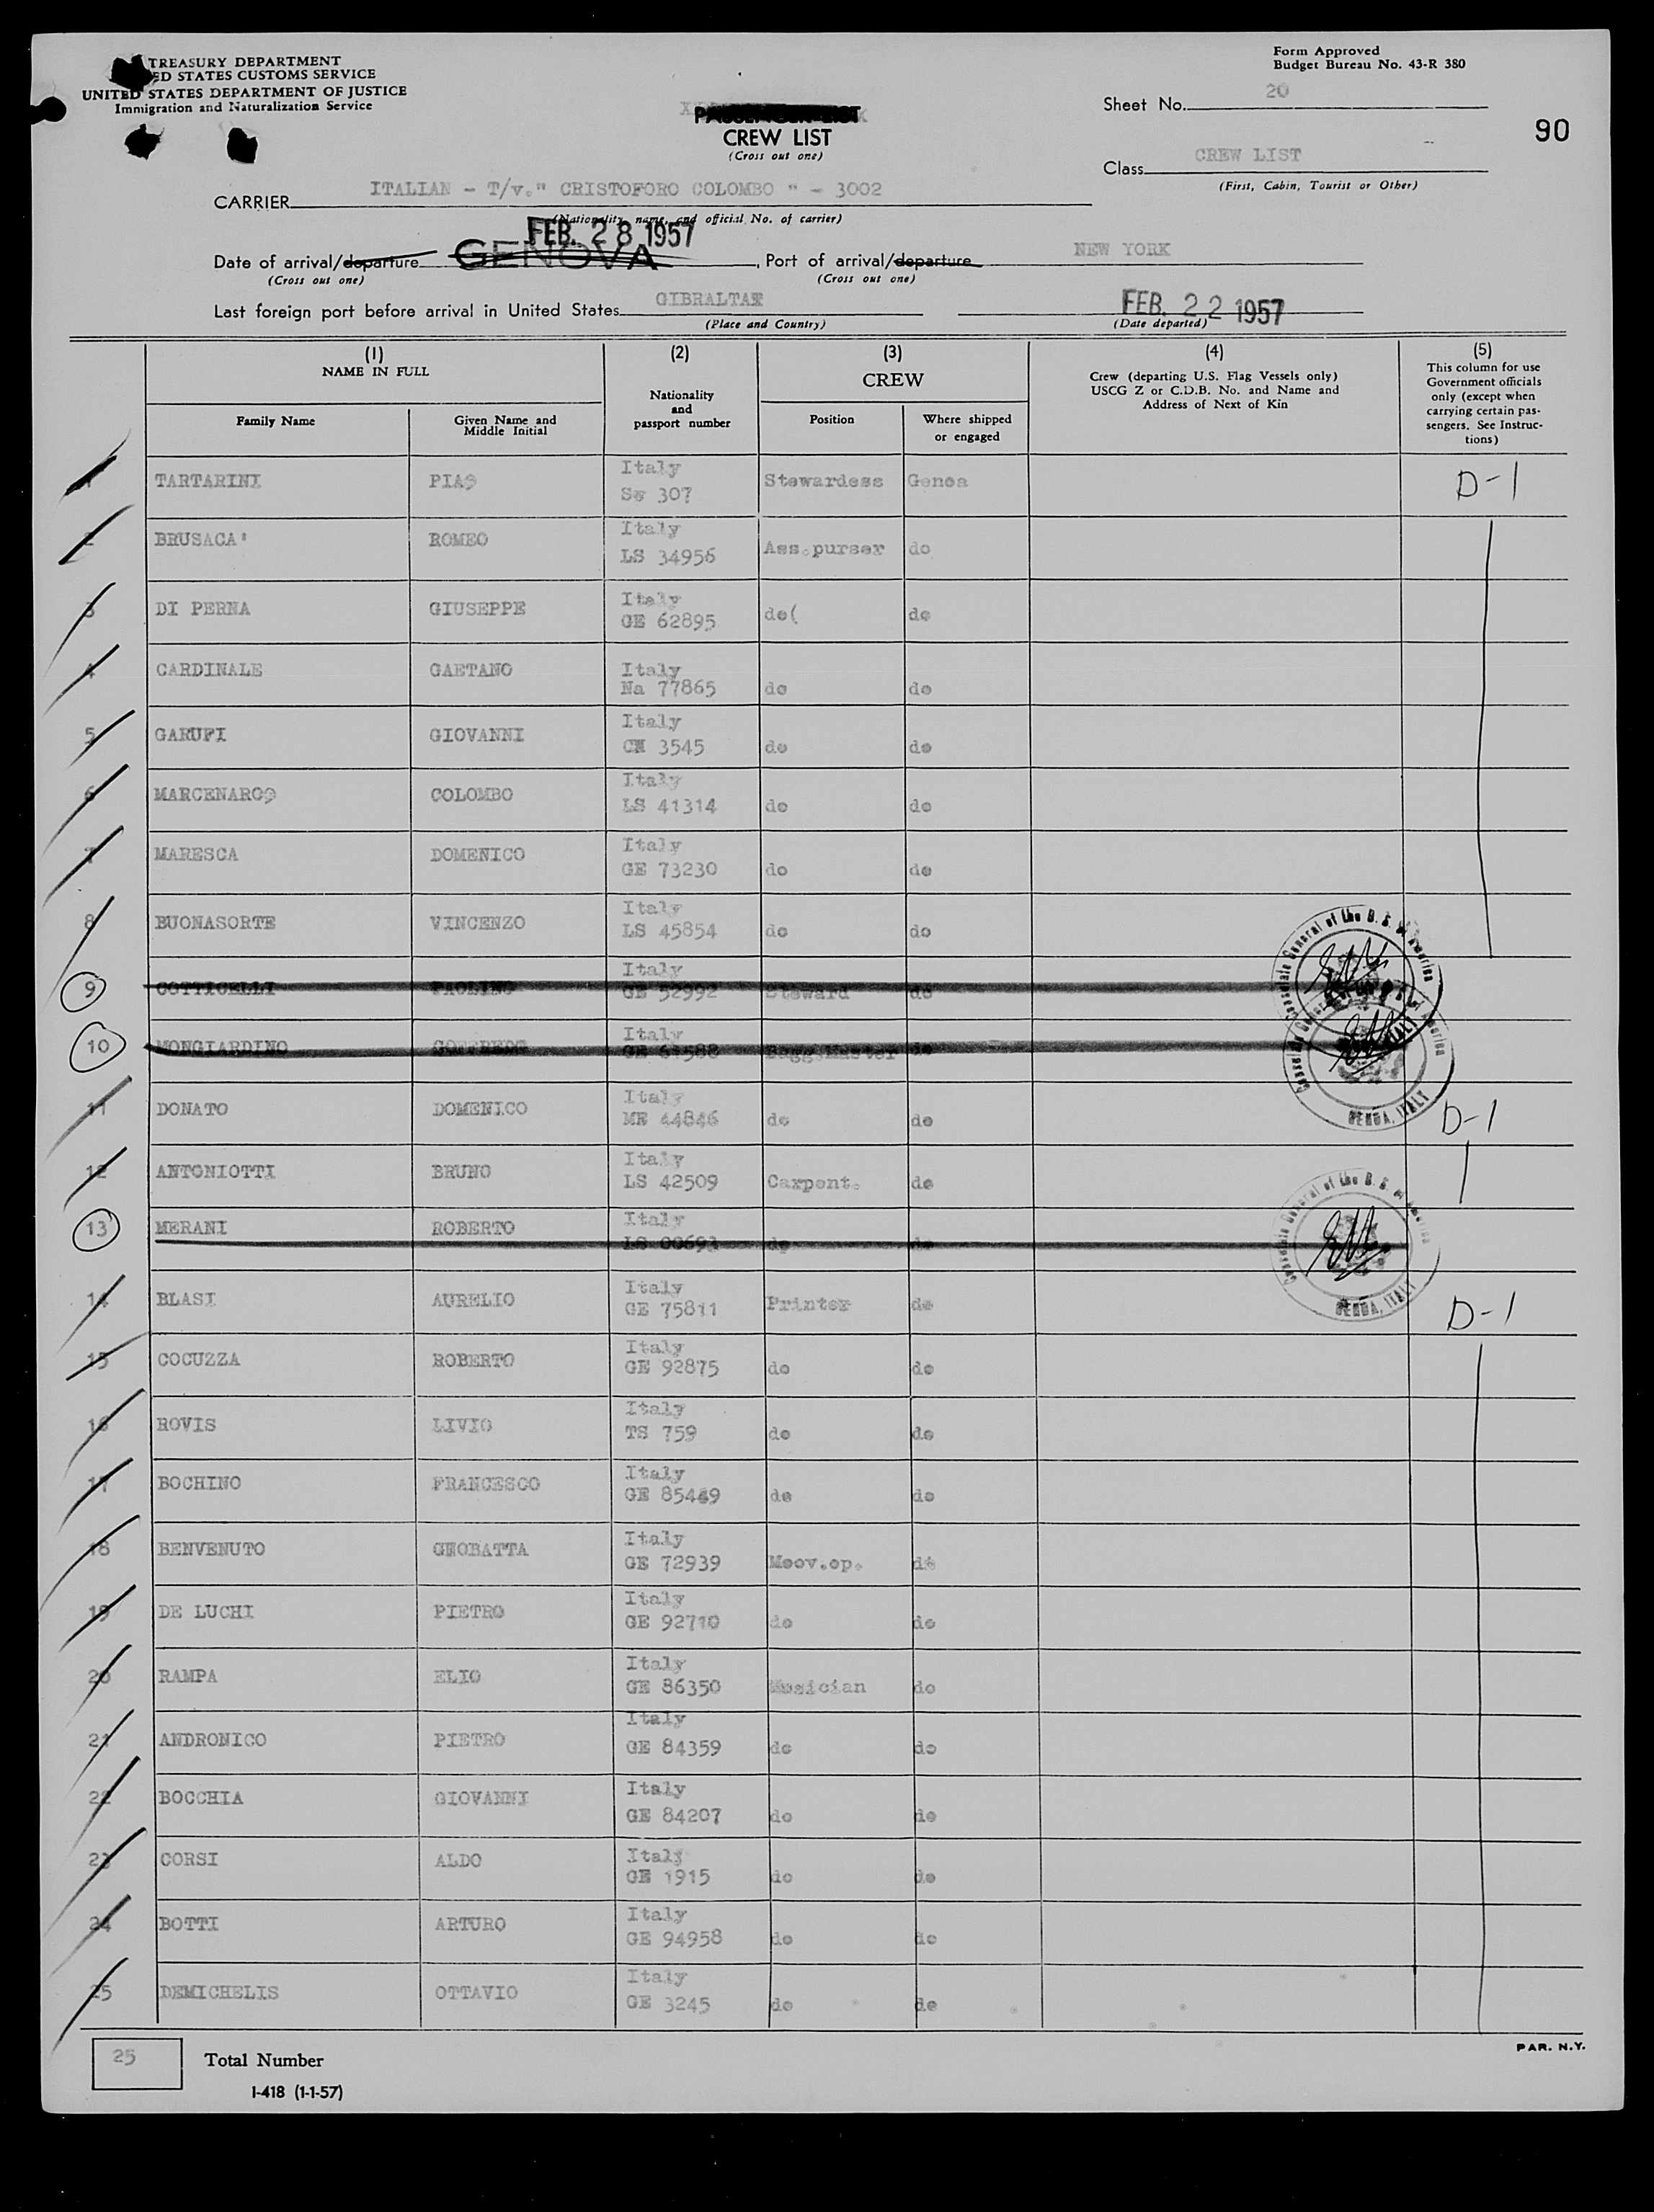 TREASURY DEPARTMENT
ED STATES CUSTOMS SERVICE
UNITED STATES DEPARTMENT OF JUSTICE
Immigration and Naturalization Service
Form Approved
Budget Bureau No. 43-R 380
PASSENGER LIST
CREW LIST
(Cross out one)
Sheet No. 20
90
Class CREW LIST
(First, Cabin, Tourist or Other)
CARRIER ITALIAN - T/v." CRISTOFORO COLOMBO " - 3002
(Nationality, name, and official No. of carrier)
FEB. 28 1957
Date of arrival/departure GENOVA, Port of arrival/departure NEW YORK
(Cross out one) (Cross out one)
Last foreign port before arrival in United States GIBRALTAR FEB. 22 1957
(Place and Country) (Date departed)
(1) NAME IN FULL (2) Nationality and passport number (3) CREW (4) Crew (departing U.S. Flag Vessels only) USCG Z or C.D.B. No. and Name and Address of Next of Kin (5) This column for use Government officials only (except when carrying certain passengers. See Instructions)
Family Name Given Name and Middle Initial Position Where shipped or engaged
1 TARTARINI PIAS Italy 307 Stewardess Genoa D-1
2 BRUSACA' ROMEO Italy LS 34956 Ass.purser do
3 DI PERNA GIUSEPPE Italy GE 62895 do( do
4 CARDINALE GAETANO Italy Na 77865 do do
5 GARUFI GIOVANNI Italy CM 3545 do do
6 MARCENARO COLOMBO Italy LS 41314 do do
7 MARESCA DOMENICO Italy GE 73230 do do
8 BUONASORTE VINCENZO Italy LS 45854 do do
9 COTTICELLI PAOLINO Italy GE 52992 Steward do
10 MONGIARDINO GOFFREDO Italy GE 61588 Bagg.Master do
11 DONATO DOMENICO Italy ME 44846 do do D-1
12 ANTONIOTTI BRUNO Italy LS 42509 Carpent. do
13 MERANI ROBERTO Italy LS 00693 do do
14 BLASI AURELIO Italy GE 75811 Printer do D-1
15 COCUZZA ROBERTO Italy GE 92875 do do
16 ROVIS LIVIO Italy TS 759 do do
17 BOCHINO FRANCESCO Italy GE 85449 do do
18 BENVENUTO GEOBATTA Italy GE 72939 Moov.op. do
19 DE LUCHI PIETRO Italy GE 92710 do do
20 RAMPA ELIO Italy GE 86350 Musician do
21 ANDRONICO PIETRO Italy GE 84359 do do
22 BOCCHIA GIOVANNI Italy GE 84207 do do
23 CORSI ALDO Italy GE 1915 do do
24 BOTTI ARTURO Italy GE 94958 do do
25 DEMICHELIS OTTAVIO Italy GE 3245 do do
GENOA, ITALY
GENOA, ITALY
25 Total Number
I-418 (1-1-57)
PAR. N.Y.